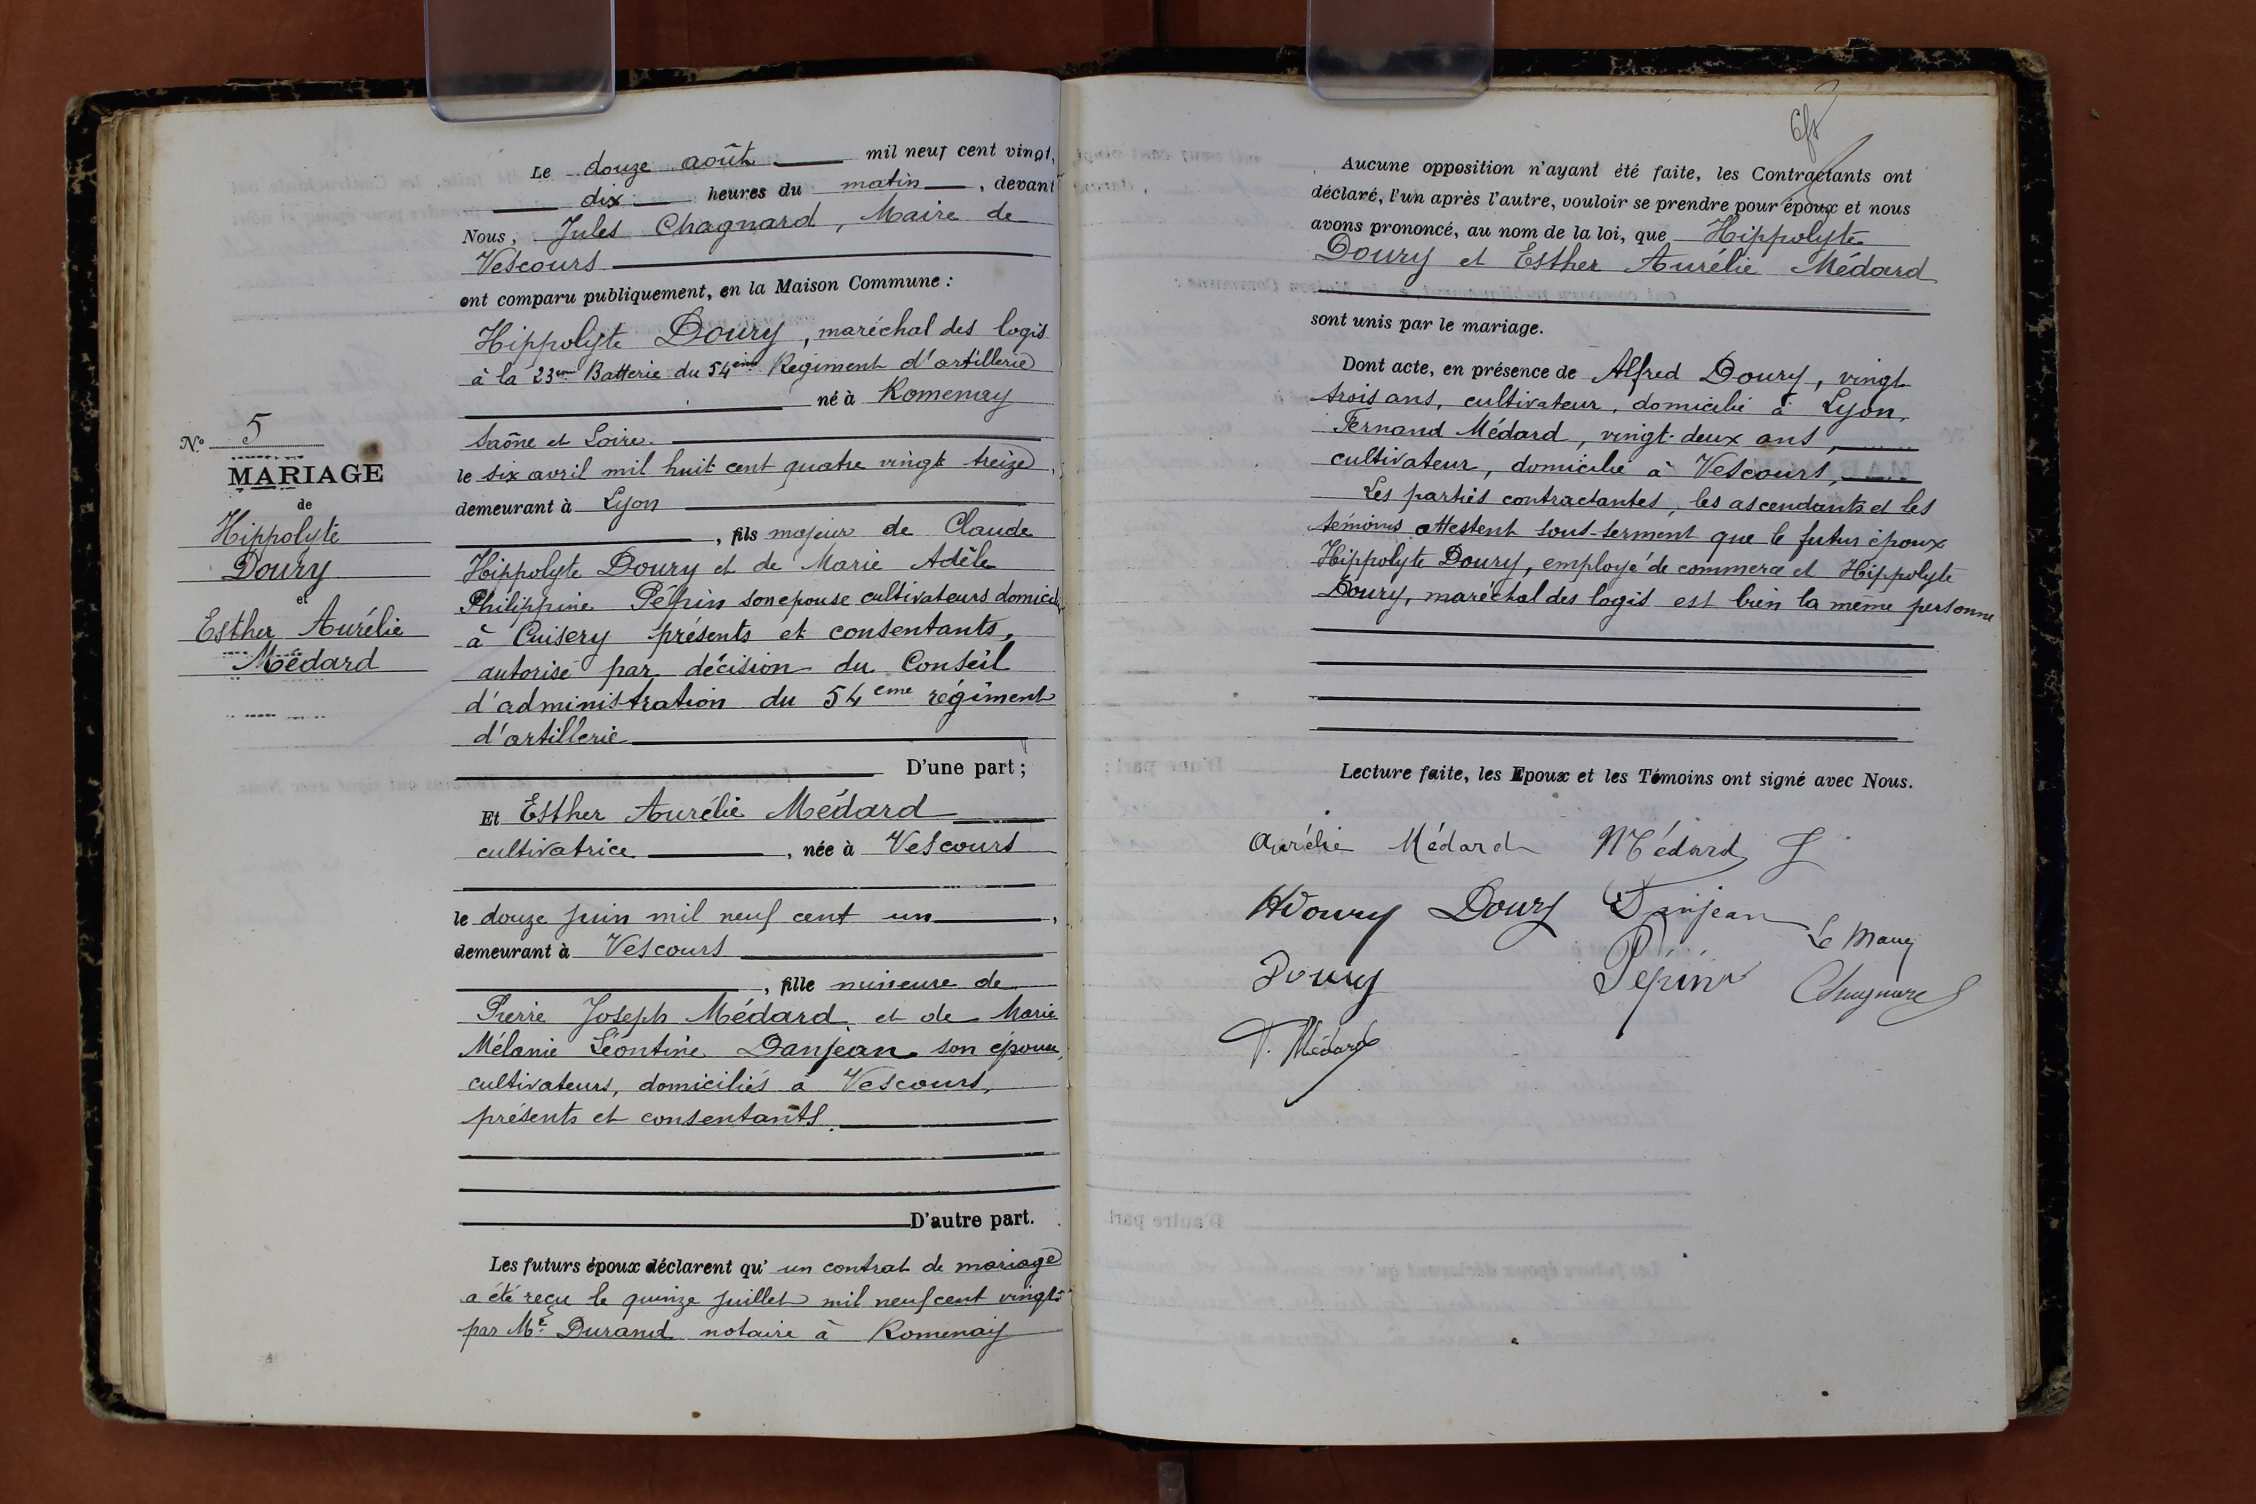 Le douze août mil neuf cent vingt,
dix heures du matin, devant
Nous, Jules Chagnard, Maire de
Vescours
ont comparu publiquement, en la Maison Commune :
Hippolyte Doury, maréchal des logis
à la 23em Batterie du 54eme Régiment d'artillerie
né à Romenay
Saône et Loire.
le six avril mil huit cent quatre vingt treize,
demeurant à Lyon
, fils majeur de Claude
Hippolyte Doury et de Marie Adèle
Philippine Pépin son épouse cultivateurs domiciliés
à Cuisery présents et consentants,
autorisé par décision du Conseil
d'administration du 54eme régiment
d'artillerie
D'une part ;
Et Esther Aurélie Médard
cultivatrice, née à Vescours
le douze juin mil neuf cent un,
demeurant à Vescours
, fille mineure de
Pierre Joseph Médard et de Marie
Mélanie Léontine Danjean son épouse,
cultivateurs, domiciliés à Vescours,
présents et consentants.
D'autre part.
Les futurs époux déclarent qu'un contrat de mariage
a été reçu le quinze juillet mil neuf cent vingt
par Me Durand notaire à Romenay
No 5
MARIAGE
de
Hippolyte
Doury
et
Esther Aurélie
Médard
Aucune opposition n'ayant été faite, les Contractants ont
déclaré, l'un après l'autre, vouloir se prendre pour époux et nous
avons prononcé, au nom de la loi, que Hippolyte
Doury et Esther Aurélie Médard
sont unis par le mariage.
Dont acte, en présence de Alfred Doury, vingt
trois ans, cultivateur, domicilié à Lyon,
Fernand Médard, vingt-deux ans,
cultivateur, domicilié à Vescours,
Les parties contractantes, les ascendants et les
témoins attestent sous-serment que le futur époux
Hippolyte Doury, employé de commerce et Hippolyte
Doury, maréchal des logis est bien la même personne
Lecture faite, les Epoux et les Témoins ont signé avec Nous.
Aurélie Médard Médard J
HDoury Doury Danjean
Le Maire
Doury Pépin Chagnard
F. Médard